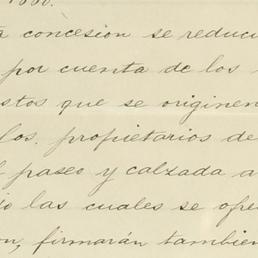 concesion se reduci
por cuenta de los
stos que se originen
los propietarios de
paseo y calzada a
io las cuales se ope
on, firmarán tambien